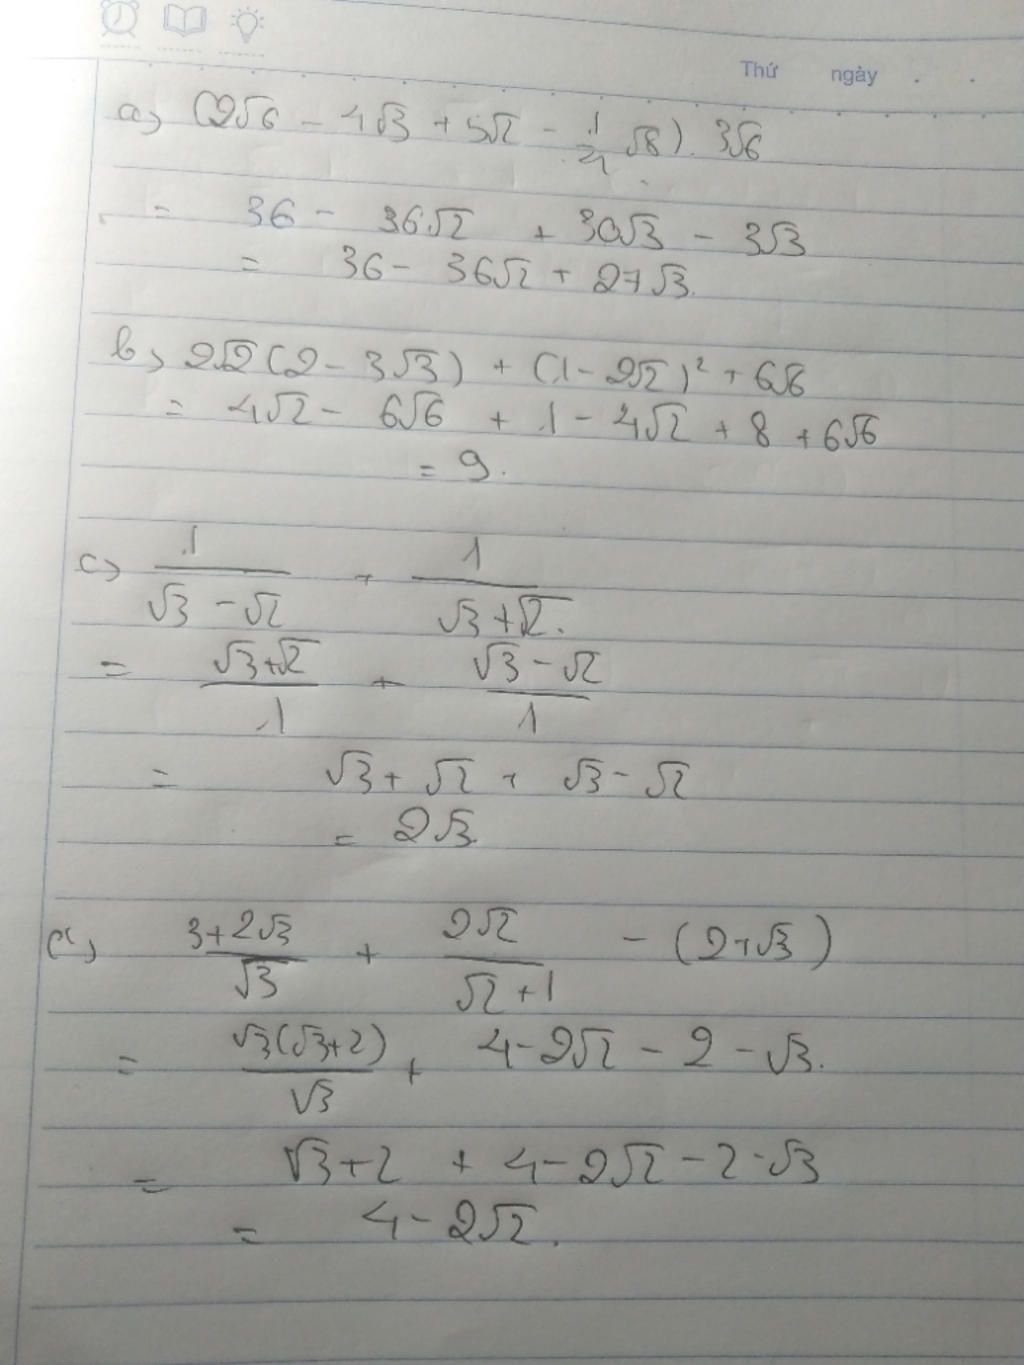 Thứ ngày . .
a) (2√6 - 4√3 + 5√2 - 1/4 √8). 3√6
= 36 - 36√2 + 30√3 - 3√3
= 36 - 36√2 + 27√3.
b) 2√2(2 - 3√3) + (1 - 2√2)² + 6√6
= 4√2 - 6√6 + 1 - 4√2 + 8 + 6√6
= 9.
c) 1/(√3 - √2) + 1/(√3 + √2).
= (√3+√2)/1 + (√3 - √2)/1
= √3 + √2 + √3 - √2
= 2√3.
d) (3+2√3)/√3 + 2√2/(√2+1) - (2+√3)
= √3(√3+2)/√3 + 4-2√2 - 2 - √3.
= √3+2 + 4-2√2 - 2-√3
= 4 - 2√2.